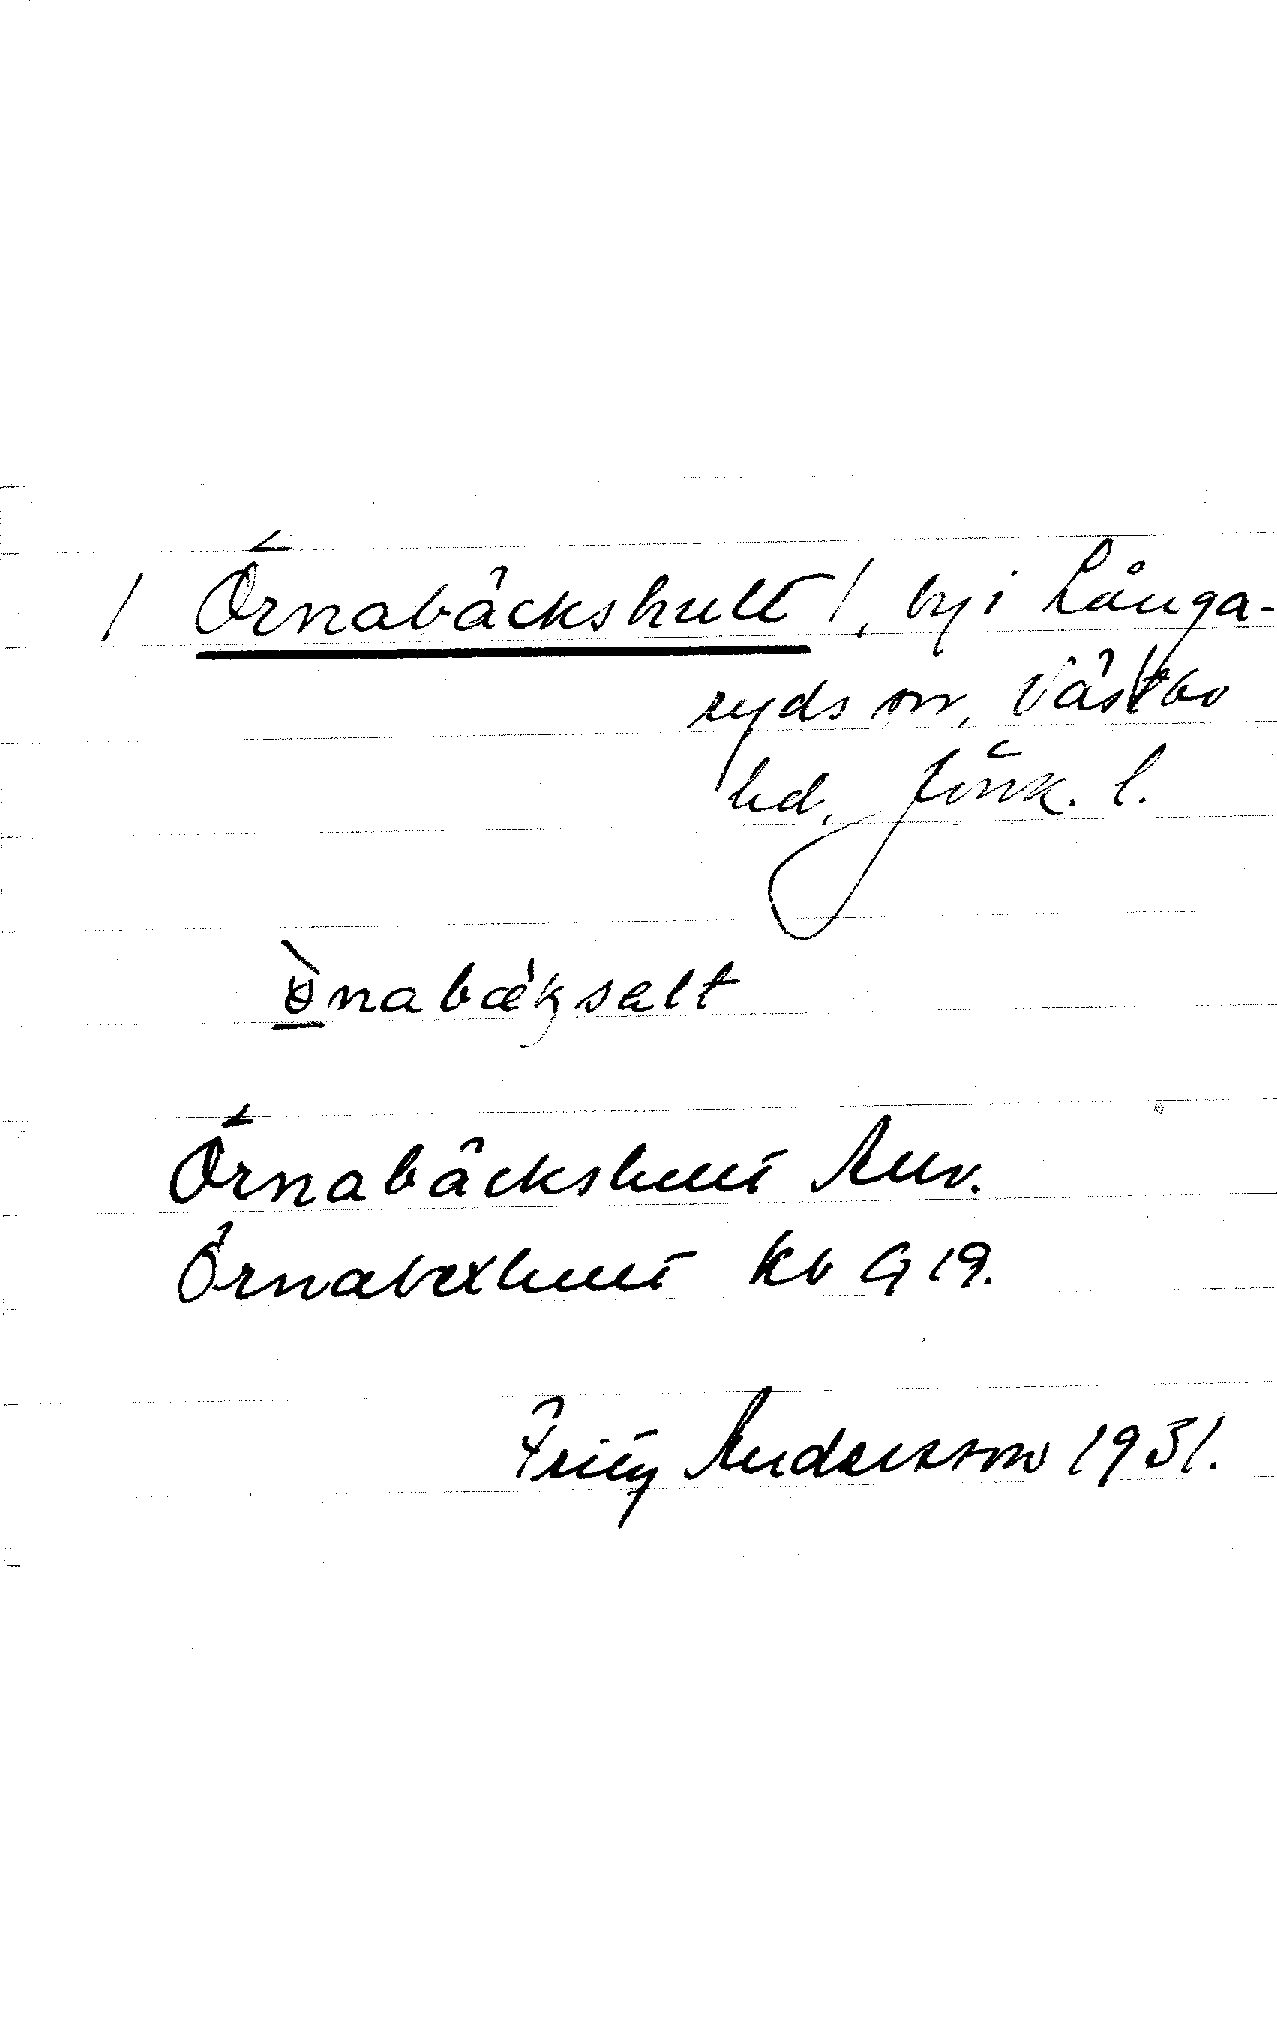 / Örnabäckshult /, by i Långa-
ryds sn, Västbo
hd, Jönk. l.
Örnabäckshult
Örnabexhult Kb G 19.
Fritz Andersson 1931.